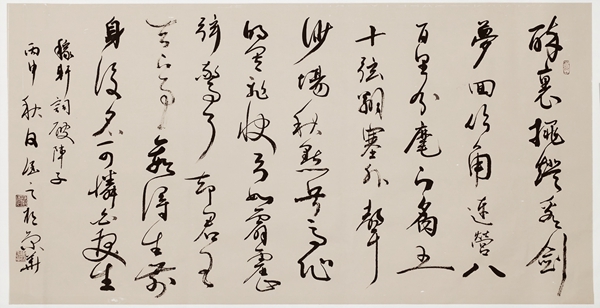 醉裏挑燈看劍
夢回吹角連營八
百里分麾下炙五
十弦翻塞外聲
沙場秋點兵馬作
的盧飛快弓如霹靂
弦驚了却君王
天下事贏得生前
身後名可憐白髮生
稼軒詞破陣子
丙申秋日之於京華